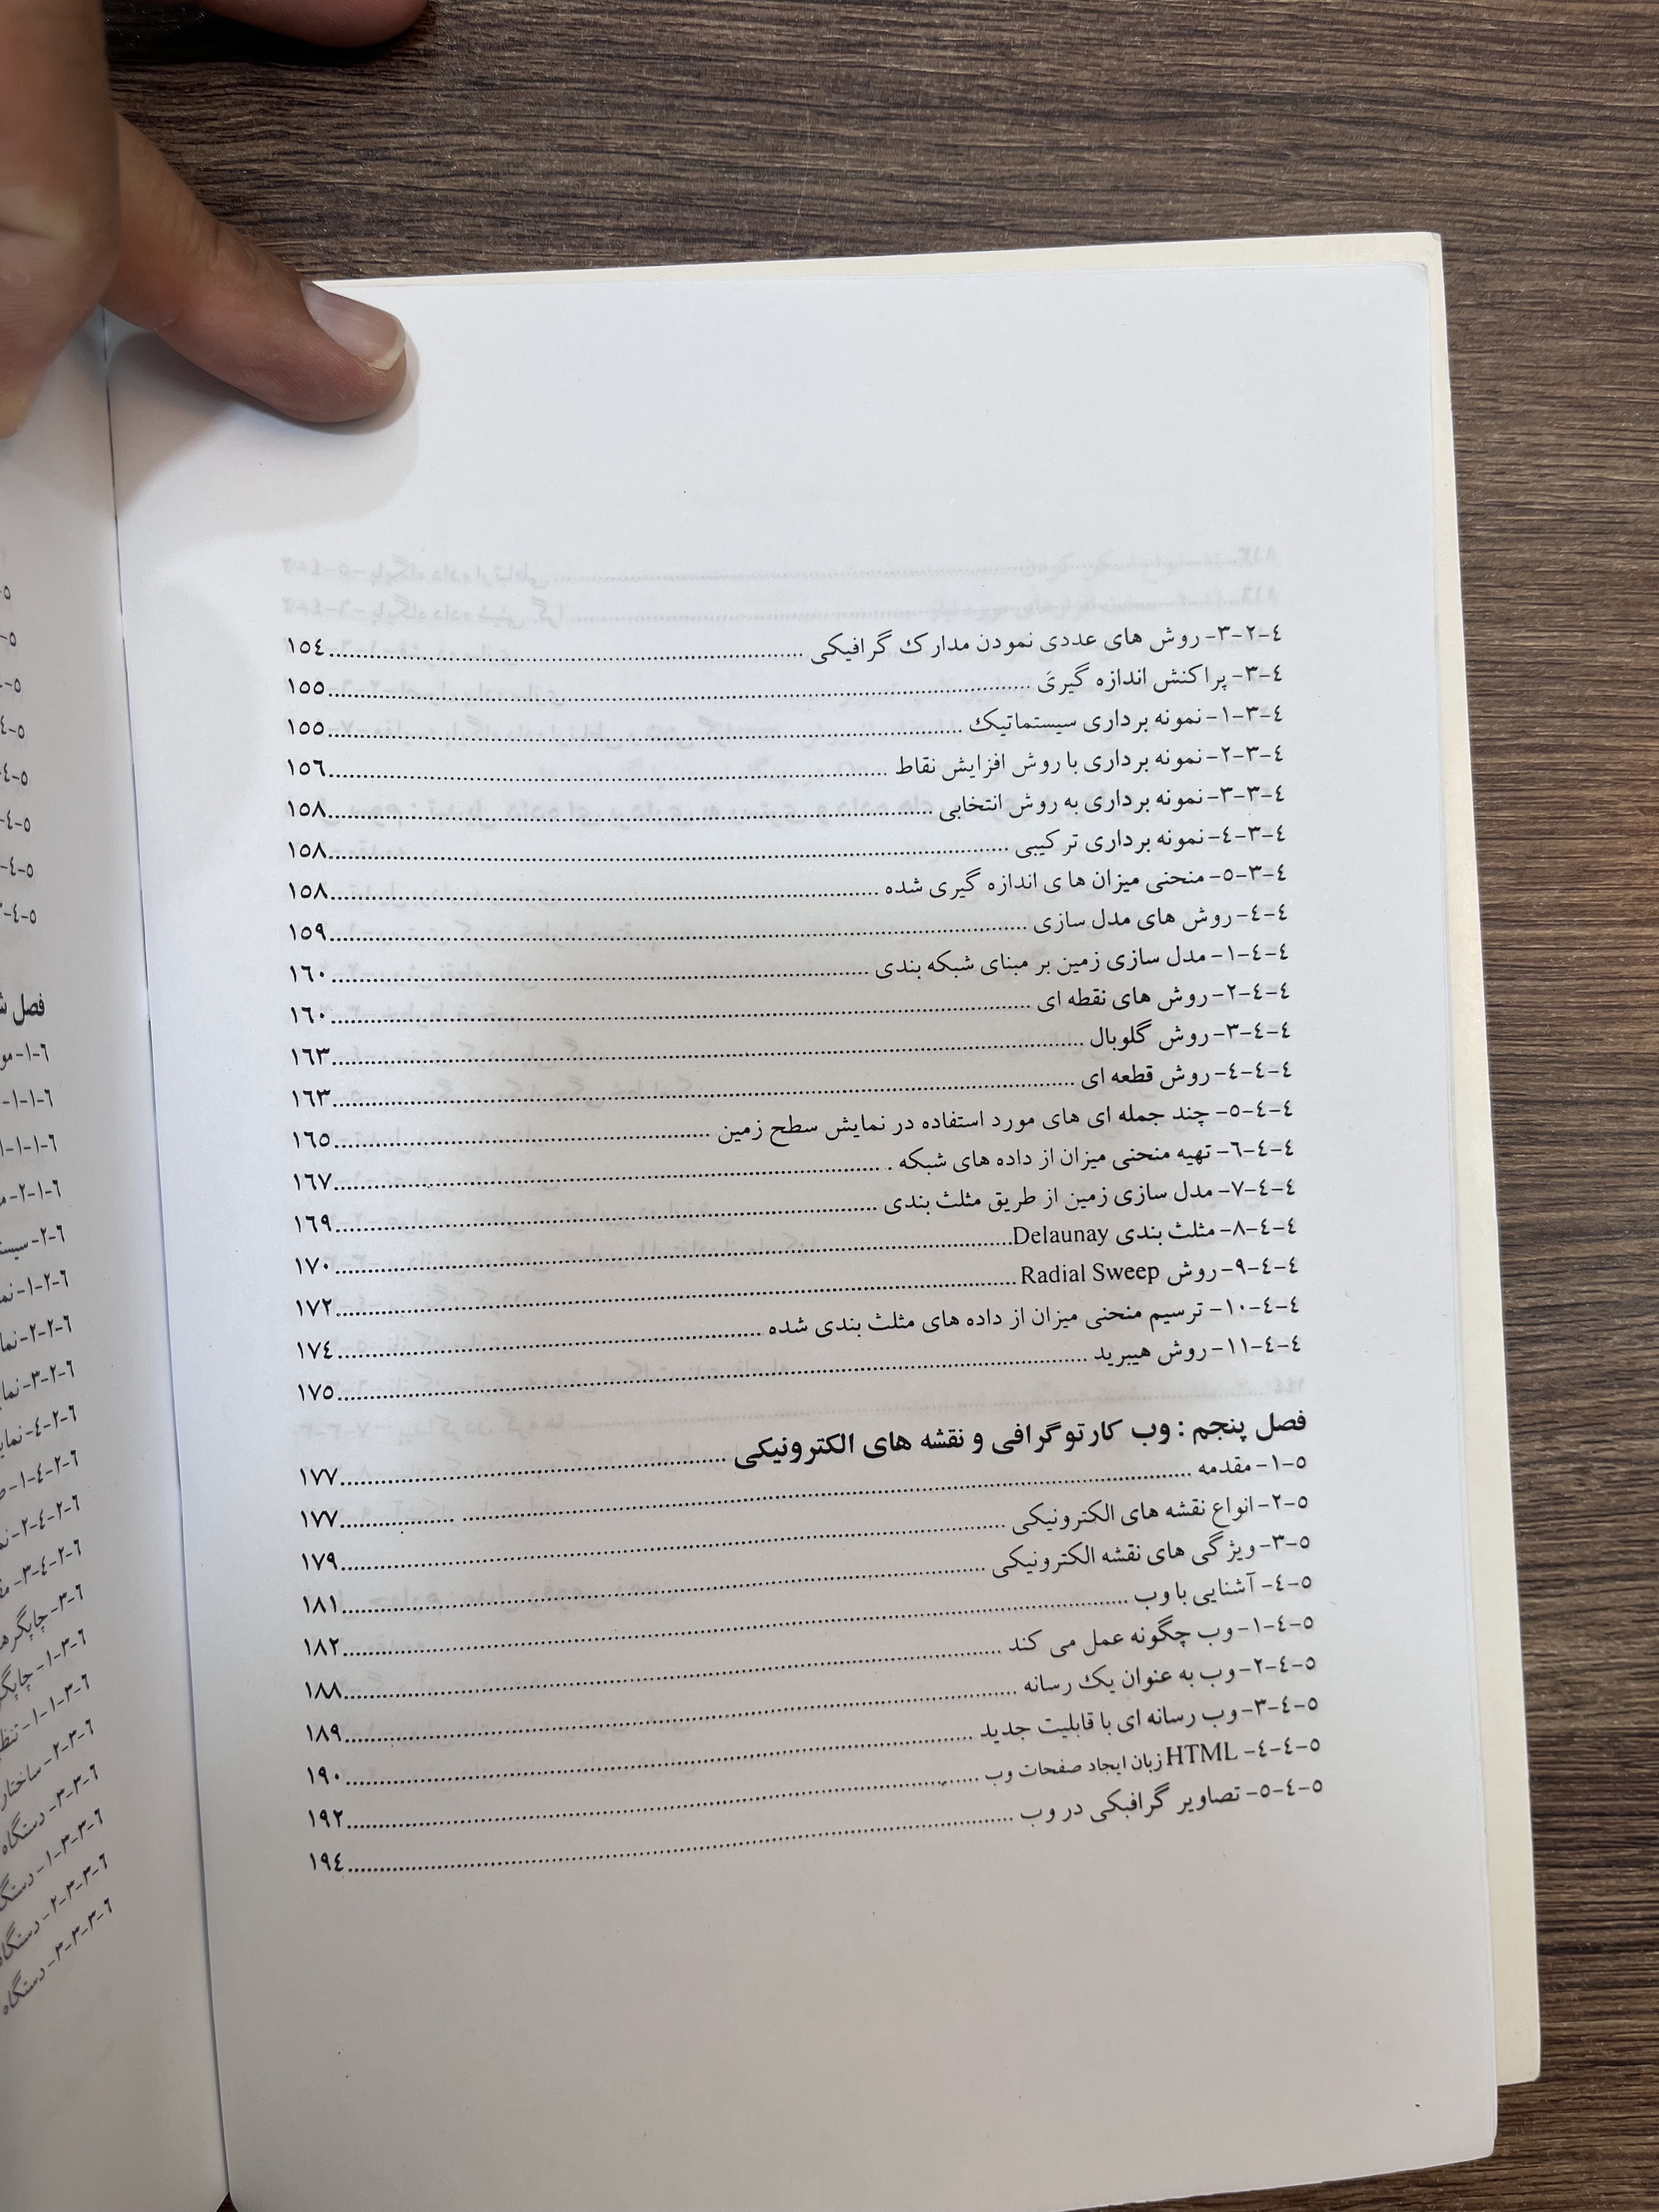 ٤-٢-٣- روش های عددی نمودن مدارک گرافیکی ........ ١٥٤
٤-٣- پراکنش اندازه گیریَ ........ ١٥٥
٤-٣-١- نمونه برداری سیستماتیک ........ ١٥٥
٤-٣-٢- نمونه برداری با روش افزایش نقاط ........ ١٥٦
٤-٣-٣- نمونه برداری به روش انتخابی ........ ١٥٨
٤-٣-٤- نمونه برداری ترکیبی ........ ١٥٨
٤-٣-٥- منحنی میزان ها ی اندازه گیری شده ........ ١٥٨
٤-٤- روش های مدل سازی ........ ١٥٩
٤-٤-١- مدل سازی زمین بر مبنای شبکه بندی ........ ١٦٠
٤-٤-٢- روش های نقطه ای ........ ١٦٠
٤-٤-٣- روش گلوبال ........ ١٦٣
٤-٤-٤- روش قطعه ای ........ ١٦٣
٤-٤-٥- چند جمله ای های مورد استفاده در نمایش سطح زمین ........ ١٦٥
٤-٤-٦- تهیه منحنی میزان از داده های شبکه . ........ ١٦٧
٤-٤-٧- مدل سازی زمین از طریق مثلث بندی ........ ١٦٩
٤-٤-٨- مثلث بندی Delaunay ........ ١٧٠
٤-٤-٩- روش Radial Sweep ........ ١٧٢
٤-٤-١٠- ترسیم منحنی میزان از داده های مثلث بندی شده ........ ١٧٤
٤-٤-١١- روش هیبرید ........ ١٧٥
فصل پنجم : وب کارتوگرافی و نقشه های الکترونیکی ........ ١٧٧
٥-١- مقدمه ........ ١٧٧
٥-٢- انواع نقشه های الکترونیکی ........ ١٧٩
٥-٣- ویژگی های نقشه الکترونیکی ........ ١٨١
٥-٤- آشنایی با وب ........ ١٨٢
٥-٤-١- وب چگونه عمل می کند ........ ١٨٨
٥-٤-٢- وب به عنوان یک رسانه ........ ١٨٩
٥-٤-٣- وب رسانه ای با قابلیت جدید ........ ١٩٠
٥-٤-٤- HTML زبان ایجاد صفحات وب ........ ١٩٢
٥-٤-٥- تصاویر گرافبکی در وب ........ ١٩٤